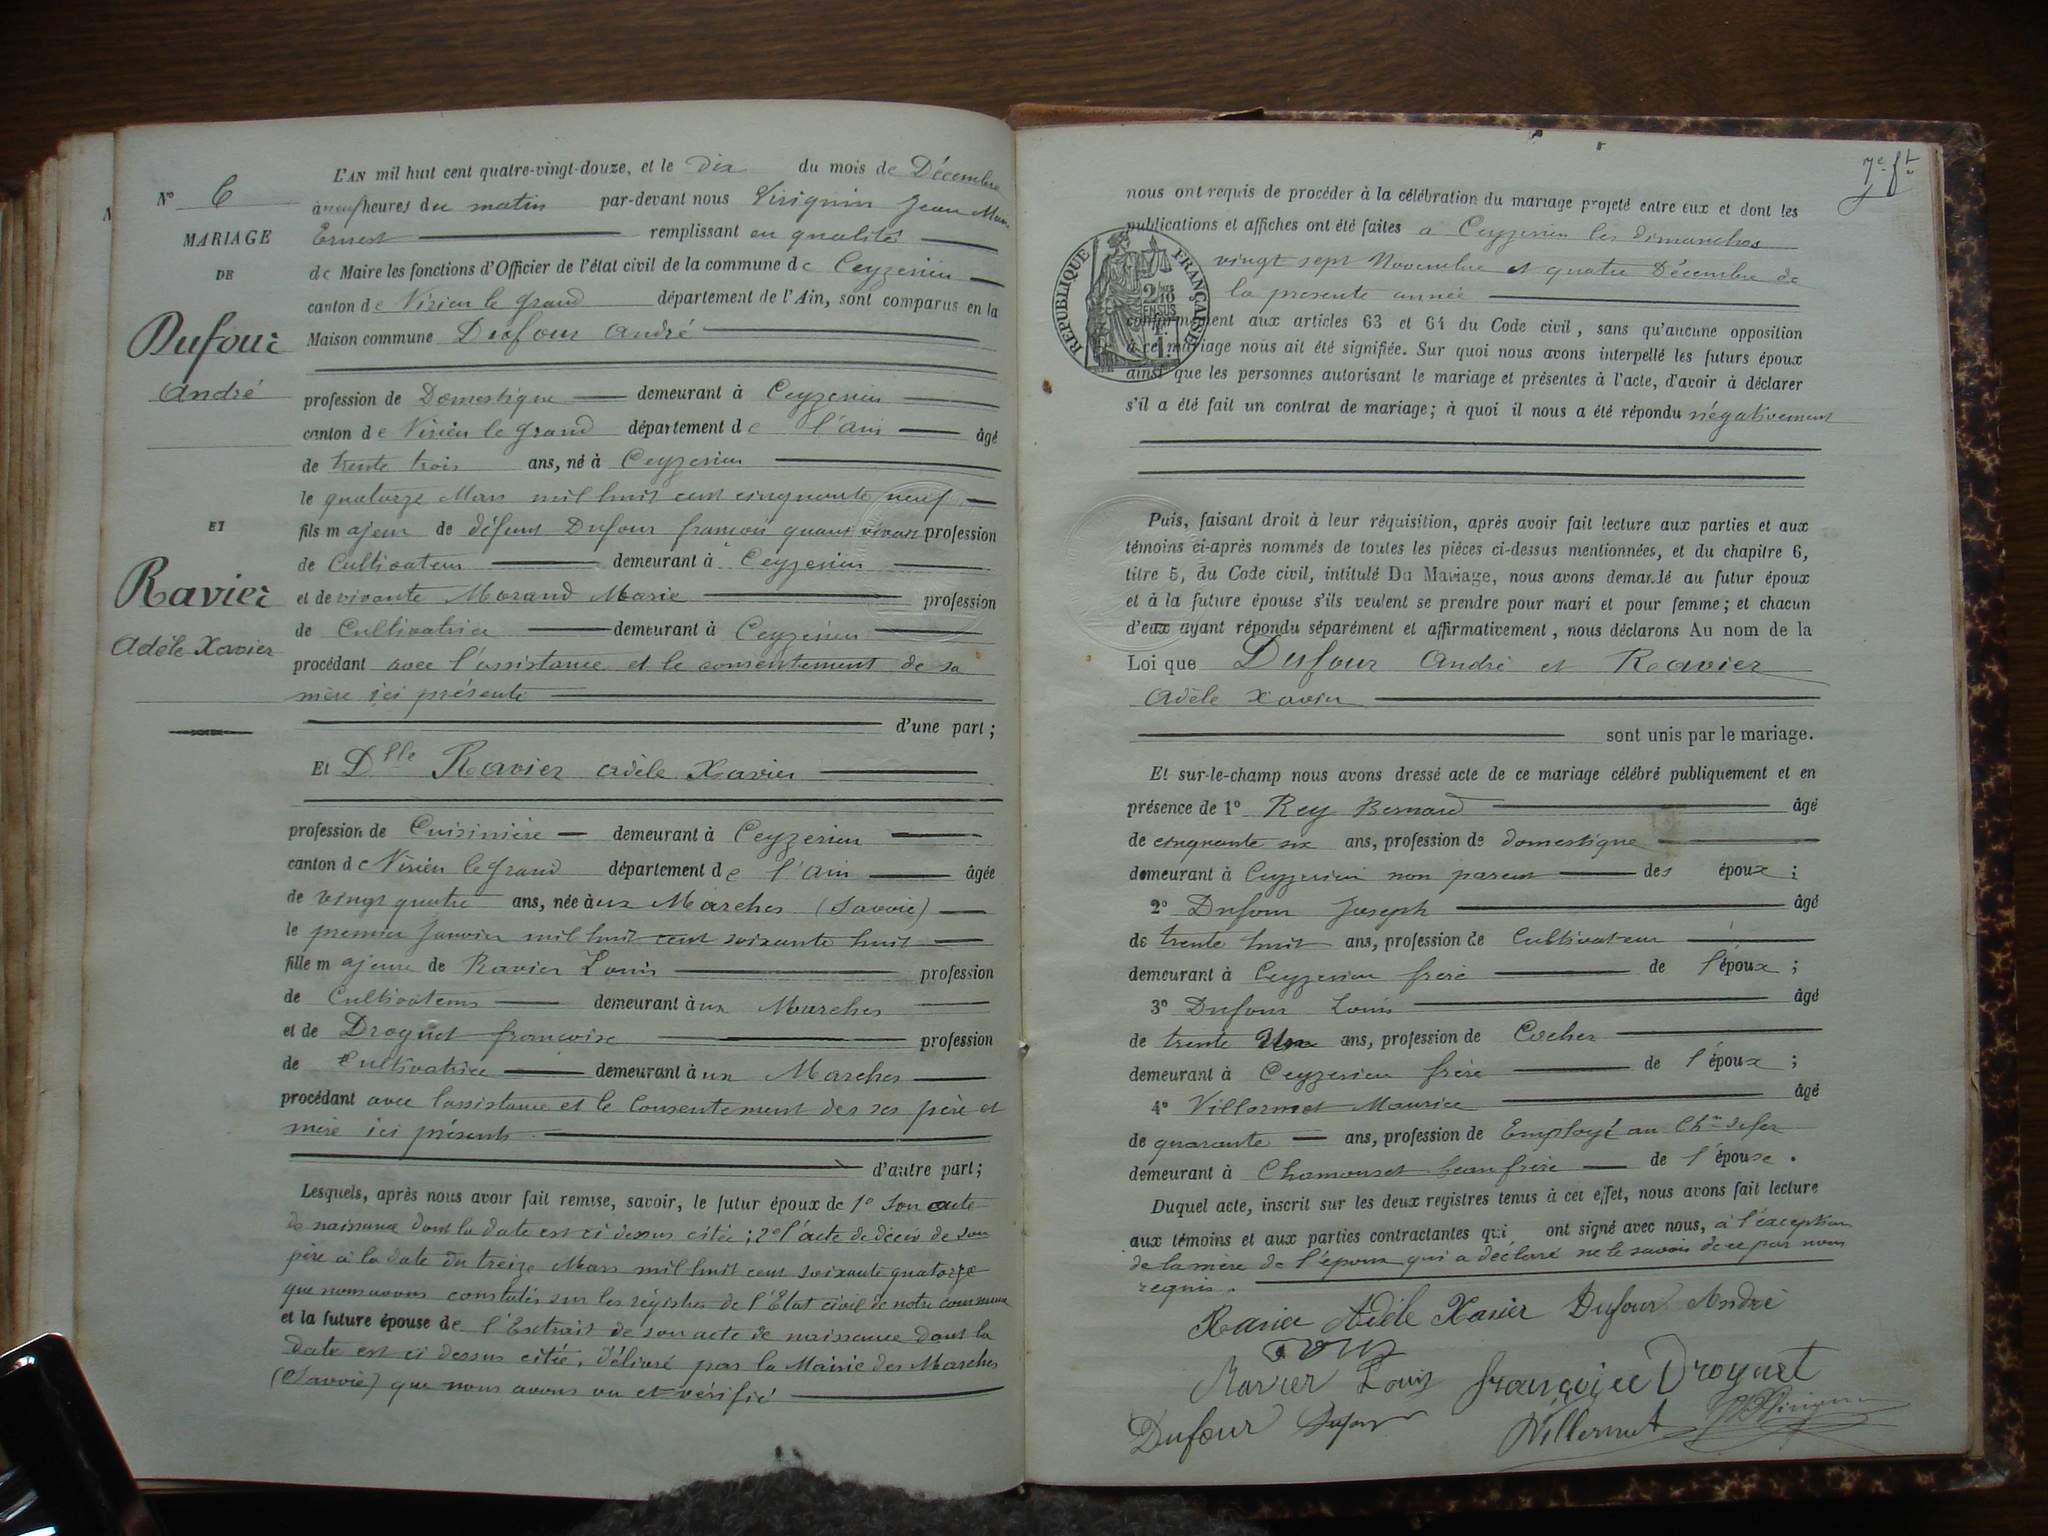 L'AN mil huit cent quatre-vingt-douze, et le dix du mois de Décembre
N° 6
à neuf heures du matin par-devant nous Virignin Jean Marie
MARIAGE
Ernest remplissant en qualité
DE
de Maire les fonctions d'Officier de l'état civil de la commune de Ceyzerieu
canton de Virieu le grand département de l'Ain, sont comparus en la
Dufour
Maison commune Dufour André
André
profession de Domestique demeurant à Ceyzerieu
canton de Virieu le grand département de l'Ain âgé
de trente trois ans, né à Ceyzerieu
le quatorze Mars mil huit cent cinquante neuf
ET
fils majeur de défunt Dufour françois quand vivait profession
de Cultivateur demeurant à Ceyzerieu
Ravier
et de vivante Morand Marie profession
Adèle Xavier
de Cultivatrice demeurant à Ceyzerieu
procédant avec l'assistance et le consentement de sa
mère ici présente
d'une part;
Et Dlle Ravier adèle Xavier
profession de Cuisinière demeurant à Ceyzerieu
canton de Virieu le grand département de l'Ain âgée
de vingt quatre ans, née aux Marches (Savoie)
le premier Janvier mil huit cent soixante huit
fille majeure de Ravier Louis profession
de Cultivateur demeurant aux Marches
et de Droguet françoise profession
de Cultivatrice demeurant aux Marches
procédant avec l'assistance et le Consentement des ses père et
mère ici présents
d'autre part;
Lesquels, après nous avoir fait remise, savoir, le futur époux de 1° son acte
de naissance dont la date est ci dessus citée; 2° l'acte de décès de son
père à la date du treize Mars mil huit cent soixante quatorze
que nous avons constatés sur les régistres de l'Etat civil de notre commune
et la future épouse de l'Extrait de son acte de naissance dont la
date est ci dessus citée, délivré par la Mairie des Marches
(Savoie) que nous avons vu et vérifié
7e ft
nous ont requis de procéder à la célébration du mariage projeté entre eux et dont les
publications et affiches ont été faites a Ceyzerieu les dimanches
vingt sept Novembre et quatre Décembre de
la présente année
RÉPUBLIQUE FRANÇAISE
2/10 EN SUS
conformément aux articles 63 et 64 du Code civil, sans qu'aucune opposition
à ce mariage nous ait été signifiée. Sur quoi nous avons interpellé les futurs époux
ainsi que les personnes autorisant le mariage et présentes à l'acte, d'avoir à déclarer
s'il a été fait un contrat de mariage; à quoi il nous a été répondu négativement
Puis, faisant droit à leur réquisition, après avoir fait lecture aux parties et aux
témoins ci-après nommés de toutes les pièces ci-dessus mentionnées, et du chapitre 6,
titre 5, du Code civil, intitulé Du Mariage, nous avons demandé au futur époux
et à la future épouse s'ils veulent se prendre pour mari et pour femme; et chacun
d'eux ayant répondu séparément et affirmativement, nous déclarons Au nom de la
Loi que Dufour André et Ravier
Adèle Xavier
sont unis par le mariage.
Et sur-le-champ nous avons dressé acte de ce mariage célébré publiquement et en
présence de 1° Rey Bernard âgé
de cinquante six ans, profession de domestique
demeurant à Ceyzerieu non parent des époux;
2° Dufour Joseph âgé
de trente huit ans, profession de Cultivateur
demeurant à Ceyzerieu frère de l'époux;
3° Dufour Louis âgé
de trente Un ans, profession de Cocher
demeurant à Ceyzerieu frère de l'époux;
4° Villermet Maurice âgé
de quarante ans, profession de Employé au Ch.in de fer
demeurant à Chamousset beau frère de l'épouse.
Duquel acte, inscrit sur les deux registres tenus à cet effet, nous avons fait lecture
aux témoins et aux parties contractantes qui ont signé avec nous, à l'exception
de la mère de l'époux qui a déclaré ne le savoir de ce par nous
requis.
Ravier Adèle Xavier Dufour André
Ravier Louis françoise Droguet
Dufour Dufour Villermet Virignin